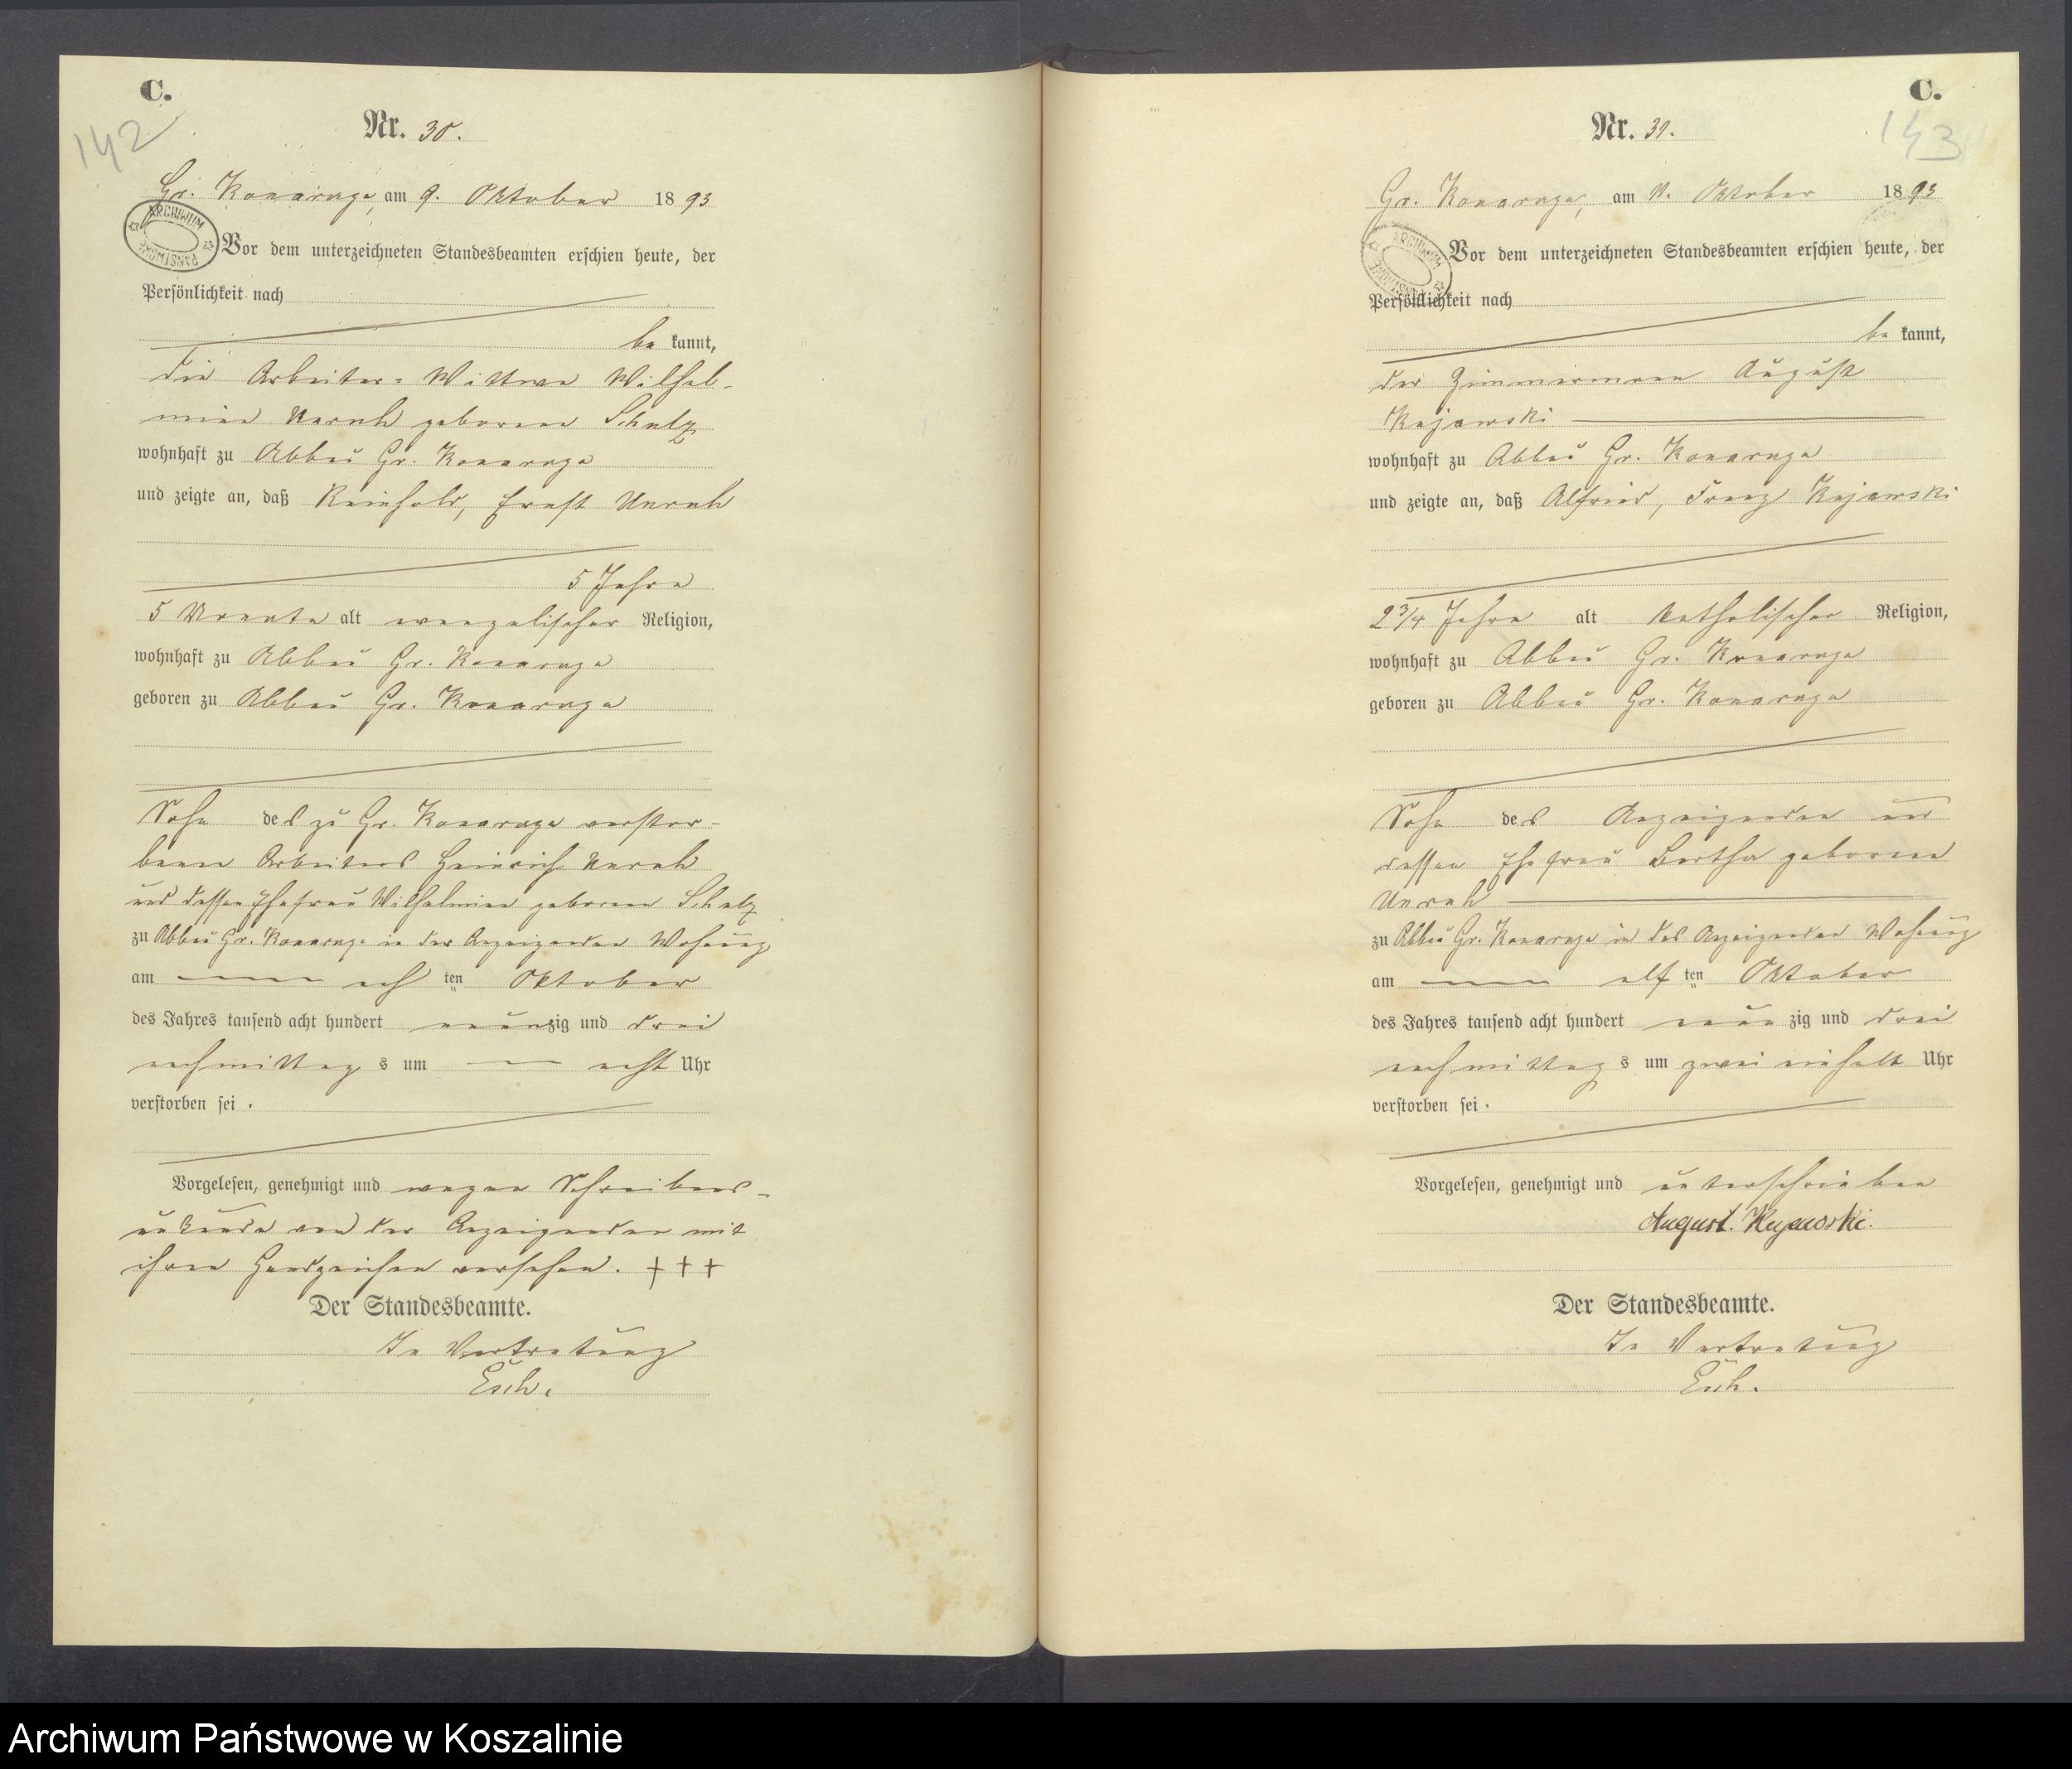 C.
142
Nr. 30.
Gr. Konarzyn, am 9. Oktober 1893
ARCHIWUM PAŃSTWOWE
Vor dem unterzeichneten Standesbeamten erschien heute, der
Persönlichkeit nach
be kannt,
die Arbeiter-Wittwe Wilhel-
mine Unruh geborene Schulz
wohnhaft zu Abbau Gr. Konarzyn
und zeigte an, daß Reinhold, Ernst Unruh
5 Jahre
5 Monate alt evangelischer Religion,
wohnhaft zu Abbau Gr. Konarzyn
geboren zu Abbau Gr. Konarzyn
Sohn des zu Gr. Konarzyn verstor-
benen Arbeiters Heinrich Unruh
und dessen Ehefrau Wilhelmine geborene Schulz
zu Abbau Gr. Konarzyn in der Anzeigenden Wohnung
am ten Oktober
des Jahres tausend acht hundert neunzig und drei
nachmittag s um acht Uhr
verstorben sei.
Vorgelesen, genehmigt und wegen Schreibens-
unkunde von der Anzeigenden mit
ihren Handzeichen versehen. +++
Der Standesbeamte.
In Vertretung
Esch.
C.
143
Nr. 31.
Gr. Konarzyn, am 11. Oktober 1893
ARCHIWUM PAŃSTWOWE
Vor dem unterzeichneten Standesbeamten erschien heute, der
Persönlichkeit nach
be kannt,
der Zimmermann August
Kujawski
wohnhaft zu Abbau Gr. Konarzyn
und zeigte an, daß Alfried, Franz Kujawski
2 3/4 Jahre alt katholischer Religion,
wohnhaft zu Abbau Gr. Konarzyn
geboren zu Abbau Gr. Konarzyn
Sohn des Anzeigenden und
dessen Ehefrau Bertha geborene
Unruh
zu Abbau Gr. Konarzyn in des Anzeigenden Wohnung
am elf ten Oktober
des Jahres tausend acht hundert neun zig und drei
nachmittag s um zwei einhalb Uhr
verstorben sei.
Vorgelesen, genehmigt und unterschrieben
August. Kujawski.
Der Standesbeamte.
In Vertretung
Esch.
Archiwum Państwowe w Koszalinie